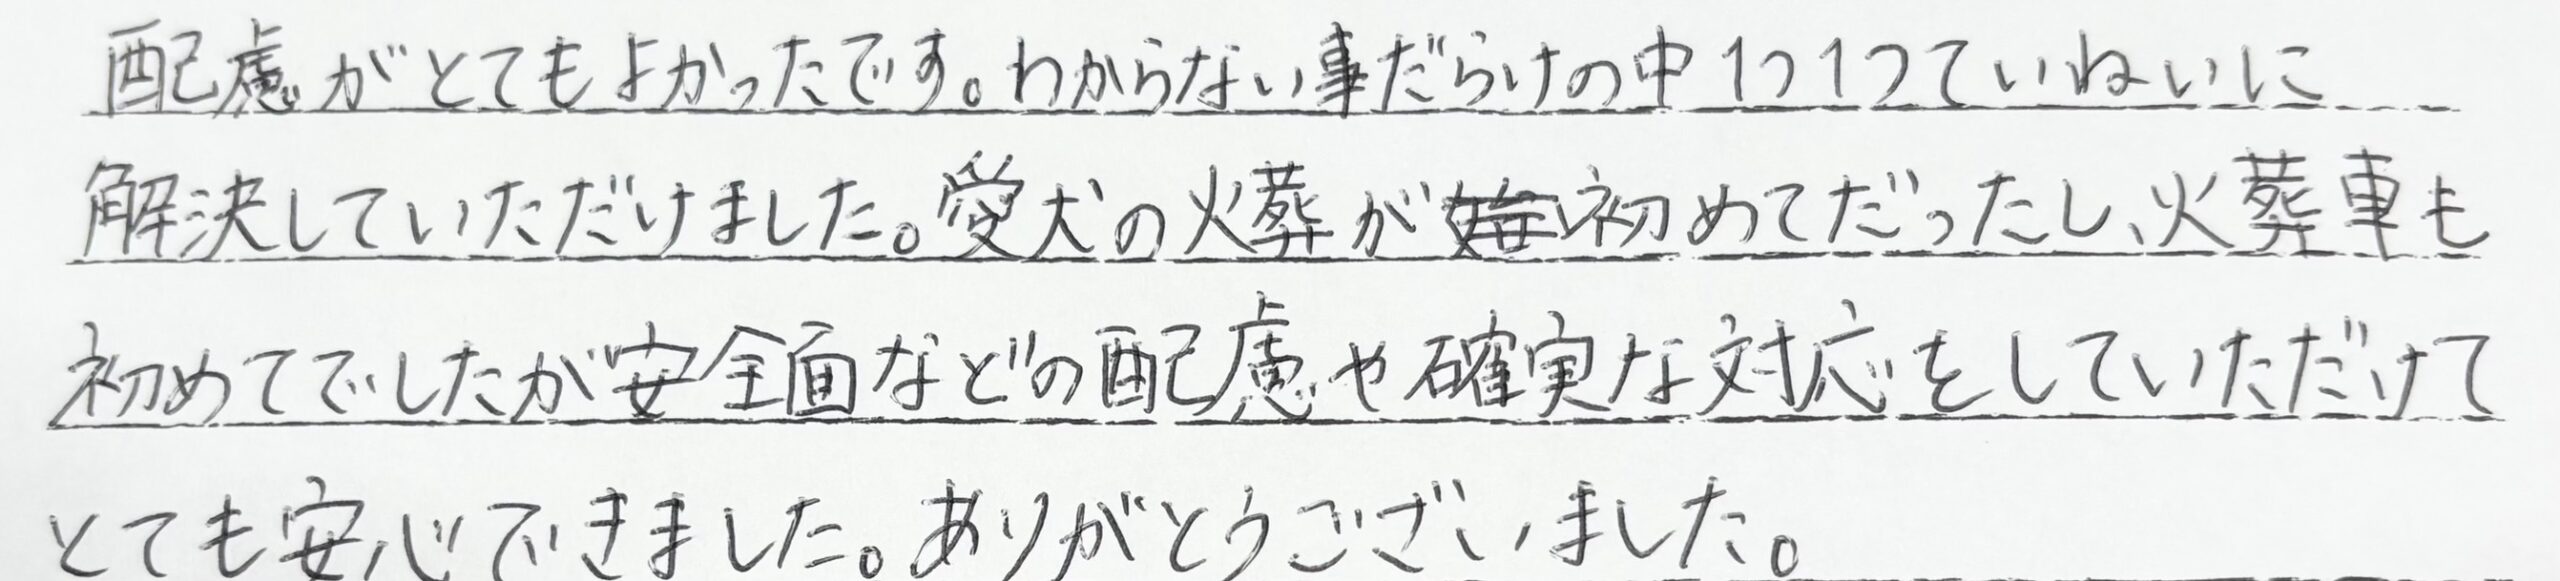 配慮がとてもよかったです。わからない事だらけの中1つ1つていねいに
解決していただけました。愛犬の火葬が初めてだったし、火葬車も
初めてでしたが安全面などの配慮や確実な対応をしていただけて
とても安心できました。ありがとうございました。